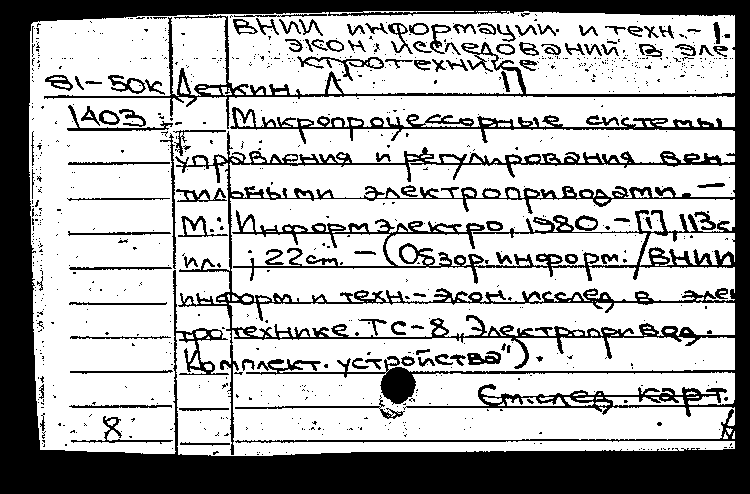 ВНИИ информации и техн.-
экон. исследований в эле-
ктротехнике
81-50к Деткин, Л П
1403 Микропроцессорные системы
управления и регулирования вен-
тильными электроприводами. —
М.: Информэлектро, 1980. – [1], 113с.
ил. ; 22см. — (Обзор. информ. / ВНИИ
информ. и техн.-экон. исслед. в элек
тротехнике. ТС-8 „Электропривод.
Комплект. устройства").
См. след. карт.
8